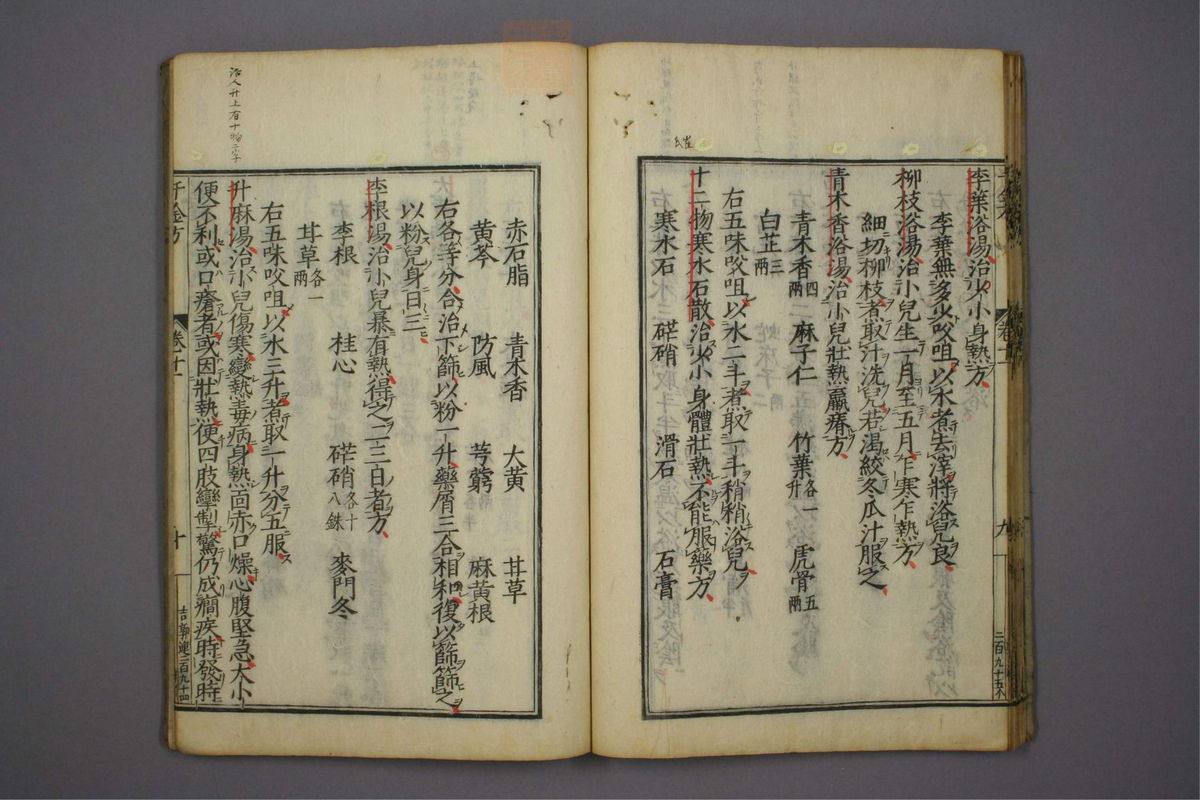 李葉浴湯治少小身熱方
李葉無多少㕮咀以水煮去滓將浴兒良
柳枝浴湯治小兒生一月至五月乍寒乍熱方
細切柳枝煮取汁洗兒若渴絞冬瓜汁服之
青木香浴湯治小兒壯熱羸瘠方
青木香四兩 麻子仁 竹葉各一升 虎骨五兩
白芷三兩
右五味㕮咀以水二斗煮取一斗稍稍浴兒
十二物寒水石散治少小身體壯熱不能服藥方
寒水石 硭硝 滑石 石膏
赤石脂 青木香 大黄 甘草
黄芩 防風 芎藭 麻黄根
右各等分合治下篩以粉一升藥屑三合相和復以篩篩之
以粉兒身日三
李根湯治小兒暴有熱得之二三日者方
李根 桂心 硭硝各十八銖 麥門冬
甘草各一兩
右五味㕮咀以水三升煮取一升分五服
升麻湯治小兒傷寒變熱毒病身熱面赤口燥心腹堅急大小
便不利或口瘡者或因壯熱便四肢攣掣驚仍成癇疾時發時
千金方 卷十一 十